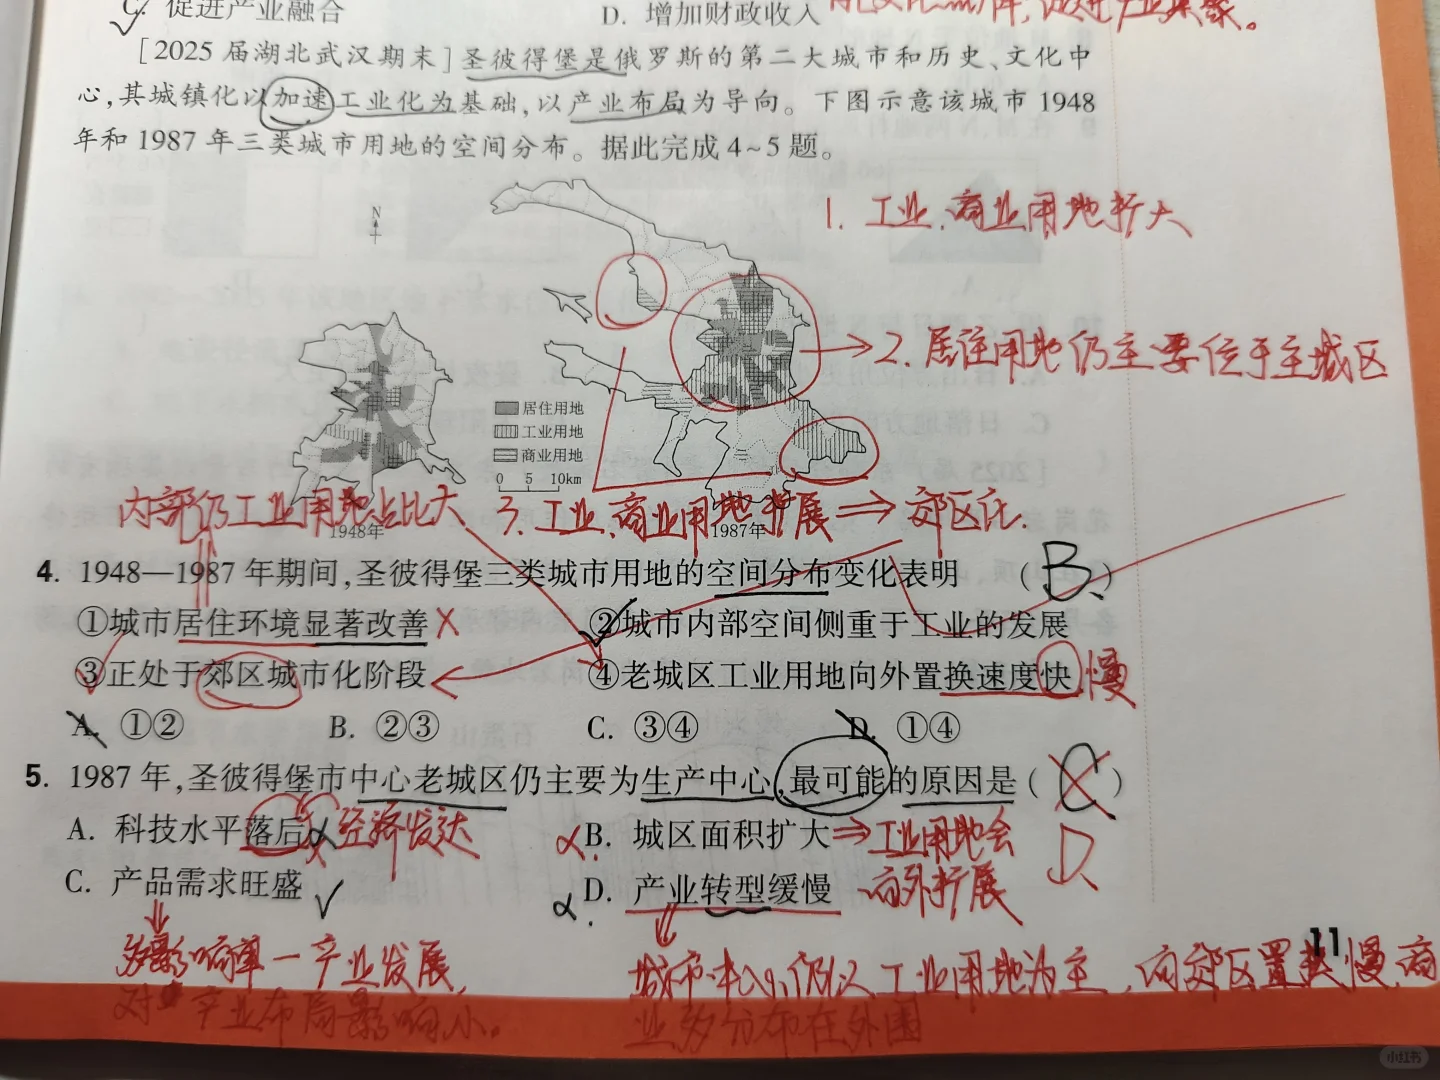 C. 促进产业融合
D. 增加财政收入
[2025届湖北武汉期末]圣彼得堡是俄罗斯的第二大城市和历史、文化中
心,其城镇化以加速工业化为基础,以产业布局为导向。下图示意该城市1948
年和1987年三类城市用地的空间分布。据此完成4~5题。
N
1. 工业、商业用地扩大
2. 居住用地仍主要位于主城区
居住用地
工业用地
商业用地
0 5 10km
内部仍工业用地占比大
3. 工业、商业用地扩展⇒郊区化.
1948年
1987年
4. 1948—1987年期间,圣彼得堡三类城市用地的空间分布变化表明 (B.)
①城市居住环境显著改善 X
②城市内部空间侧重于工业的发展
③正处于郊区城市化阶段
④老城区工业用地向外置换速度快 慢
A. ①②
B. ②③
C. ③④
D. ①④
5. 1987年,圣彼得堡市中心老城区仍主要为生产中心,最可能的原因是( C )
D.
A. 科技水平落后 经济发达
B. 城区面积扩大⇒工业用地会
向外扩展
C. 产品需求旺盛
D. 产业转型缓慢
多影响单一产业发展,
对产业布局影响小。
城市中心仍以工业用地为主,向郊区置换慢,商
业多分布在外围
11
小红书